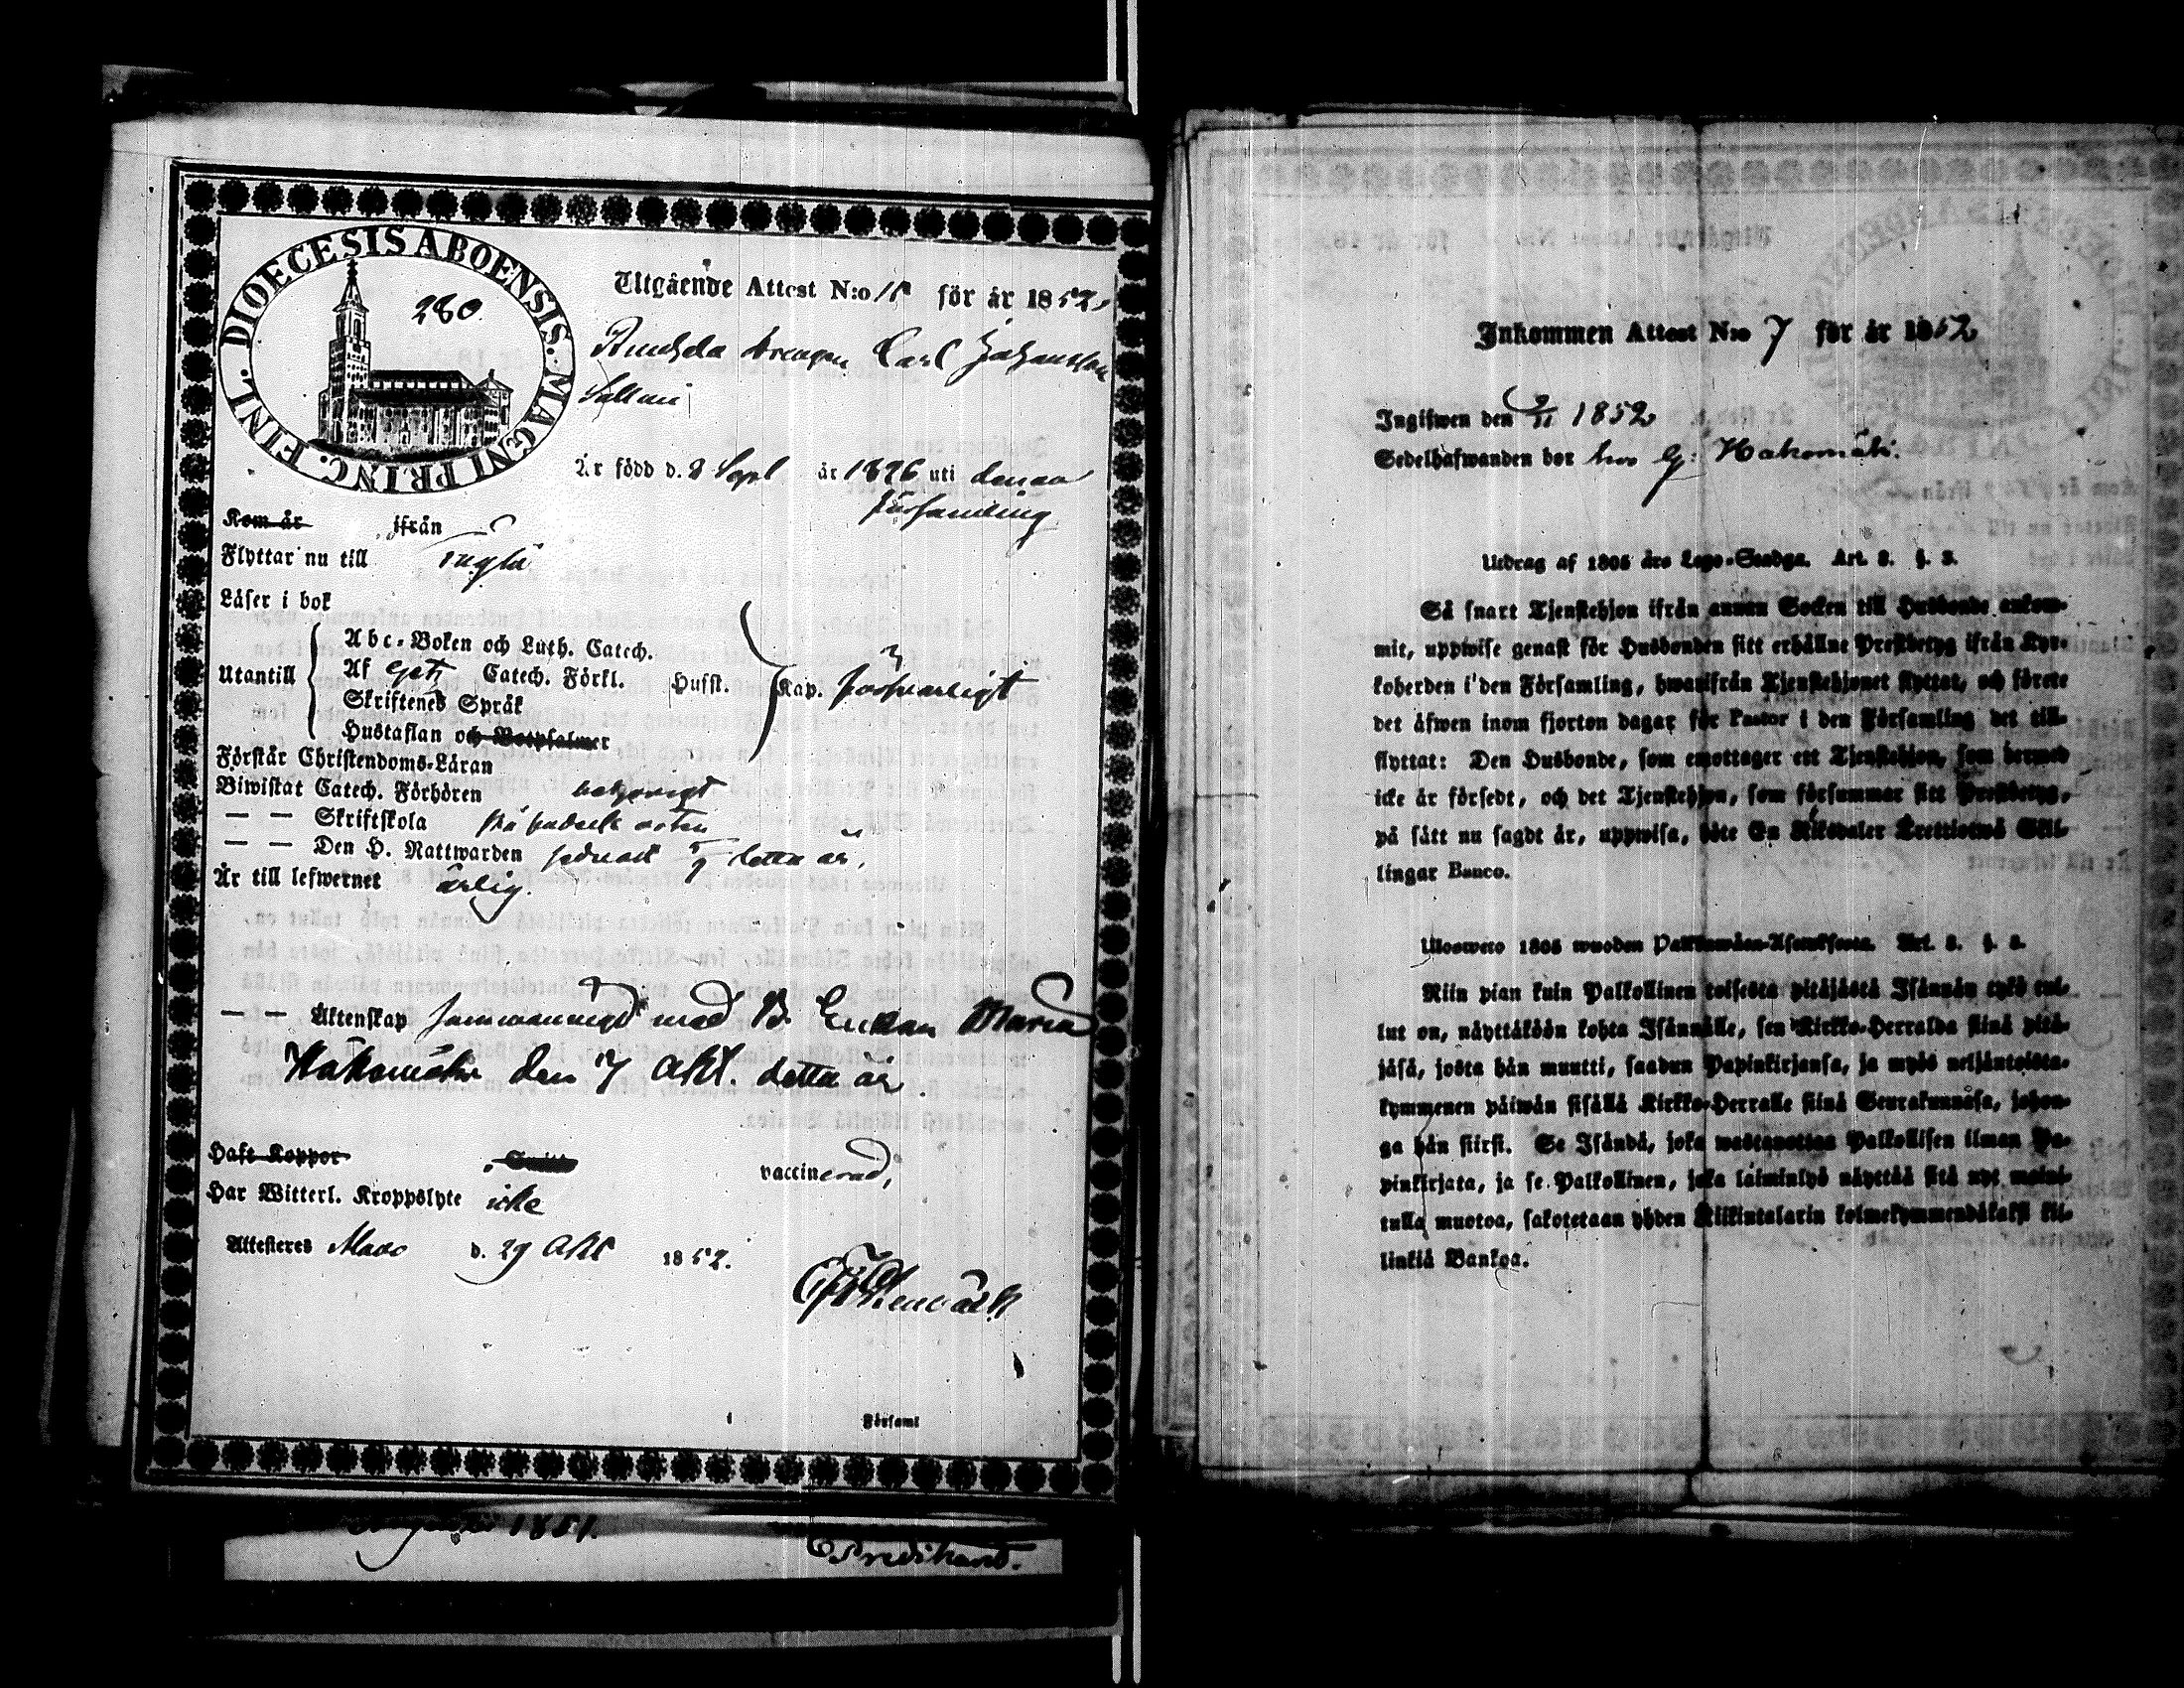 DIOECESIS ABOENSIS. MAGNI PRINC. FINL.
280.
Utgående Attest N:o för år 1852,
drengen Carl Johansson
Är född d. 8 Sept år 1826 uti denna
församling
Kom år ifrån
Flyttar nu till
Läser i bok
Utantill
Abc-Boken och Luth. Catech.
Af Catech. Förkl. Husst. Kap. försvarligt
Skriftenes Språk
Hustaflan och Botpsalmer
Förstår Christendoms-Läran
Biwistat Catech. Förhören behörigt
— — Skriftskola
— — Den H. Nattwarden sednast 5/9 detta år,
Är till lefwernet ärlig.
— — Äktenskap sammanvigd med B. Enkan Maria
Hakomäki den 7 Okt. detta år
Haft Koppor, vaccinerad,
Har Witterl. Kroppslyte icke
Attesteres Mouo d. 29 Okt 1852.
Församl
1851.
Inkommen Attest N:o 7 för år 1852
Ingifwen den 2/11 1852
Sedelhafwanden bor hos G: Hakomäki.
Utdrag af 1805 års Lego-Stadga. Art. 8. §. 3.
Så snart Tjenstehjon ifrån annan Socken till Husbonde ankom-
mit, uppwise genast för Husbonden sitt erhållne Prestbetyg ifrån Kyr-
koherden i den Församling, hwarifrån Tjenstehjonet flyttat, och förete
det äfwen inom fjorton dagar för Pastor i den Församling det till-
flyttat: Den Husbonde, som emottager ett Tjenstehjon, som dermed
icke är försedt, och det Tjenstehjon, som försummar sitt Prestbetyg,
på sätt nu sagdt är, uppwisa, böte En Riksdaler Trettiotwå Skil-
lingar Banco.
Uloswero 1805 wuoden Palkkawäen-Asetuksesta. Art. 8. §. 3.
Niin pian kuin Palkollinen toisesta pitäjästä Isännän tykö tul-
lut on, näyttäköön kohta Isännälle, sen Kirkko-Herralda siinä pitä-
jäsä, josta hän muutti, saadun Papinkirjansa, ja myös neljäntoista-
kymmenen päiwän sisällä Kirkko-Herralle siinä Seurakunnasa, johon-
ga hän siirsi. Se Isändä, joka wastaanottaa Palkollisen ilman Pa-
pinkirjata, ja se Palkollinen, joka laiminlyö näyttää sitä nyt maini-
tulla muotoa, sakotetaan yhden Riikintalarin kolmekymmendäkaksi kil-
linkiä Bankoa.